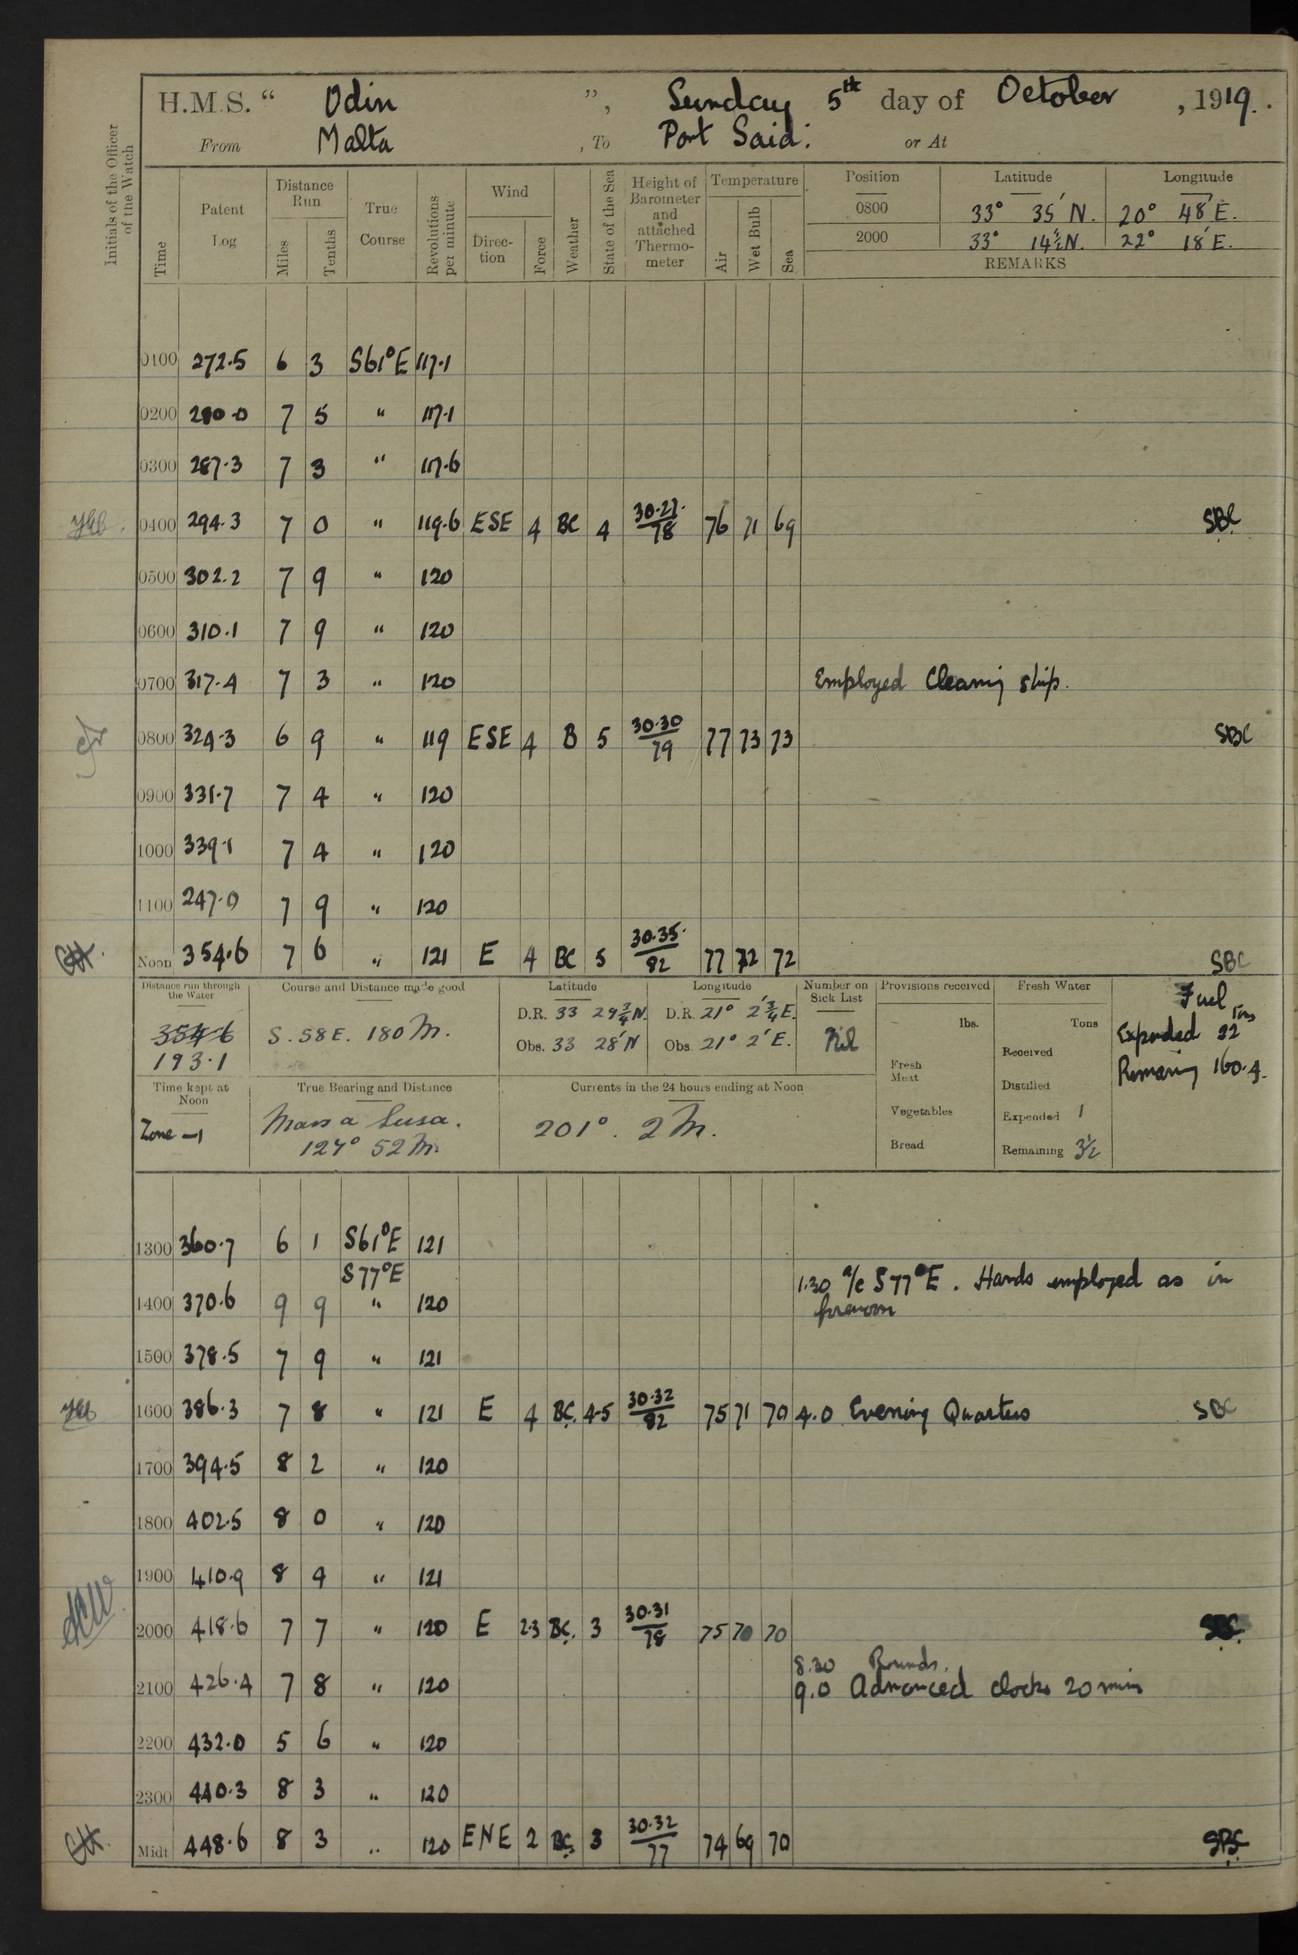 H.M.S. “ Odin ”, Sunday 5th day of October , 1919.
From Malta , To Port Said: or At
Initials of the Officer of the Watch
Time Patent Log Distance Run Miles Tenths True Course Revolutions per minute Wind Direc-tion Force Weather State of the Sea Height of Barometer and attached Thermo-meter Temperature Air Wet Bulb Sea
Position Latitude Longitude
0800 33° 35' N. 20° 48' E.
2000 33° 14½' N. 22° 18' E.
REMARKS
0100 272.5 6 3 S61°E 117.1
0200 280.0 7 5 " 117.1
0300 287.3 7 3 " 117.6
0400 294.3 7 0 " 119.6 ESE 4 BC 4 30.27/78 76 71 69 SBC
0500 302.2 7 9 " 120
0600 310.1 7 9 " 120
0700 317.4 7 3 " 120 Employed Cleaning ship.
0800 324.3 6 9 " 119 ESE 4 B 5 30.30/79 77 73 73 SBC
0900 331.7 7 4 " 120
1000 339.1 7 4 " 120
1100 247.0 7 9 " 120
Noon 354.6 7 6 " 121 E 4 BC 5 30.35/82 77 72 72 SBC
Distance run through the Water
354.6
193.1
Course and Distance made good
S. 58 E. 180 M.
Latitude
D.R. 33 29¾' N.
Obs. 33 28' N
Longitude
D.R. 21° 2¾' E.
Obs. 21° 2' E.
Number on Sick List
Nil
Provisions received
lbs.
Fresh Meat
Vegetables
Bread
Fresh Water
Tons
Received
Distilled
Expended 1
Remaining 3½
Fuel
Tons
Expended 22
Remaining 160.4.
Time kept at Noon
Zone -1
True Bearing and Distance
Marsa Susa.
127° 52 M.
Currents in the 24 hours ending at Noon
201°. 2 M.
1300 360.7 6 1 S61°E 121
S77°E
1400 370.6 9 9 " 120 1.30 a/c S77°E. Hands employed as in
forenoon
1500 378.5 7 9 " 121
1600 386.3 7 8 " 121 E 4 BC. 4-5 30.32/82 75 71 70 4.0 Evening Quarters SBC
1700 394.5 8 2 " 120
1800 402.5 8 0 " 120
1900 410.9 8 4 " 121
2000 418.6 7 7 " 120 E 2.3 BC. 3 30.31/78 75 70 70 SBC.
8.30 Rounds.
2100 426.4 7 8 " 120 9.0 Advanced clocks 20 mins
2200 432.0 5 6 " 120
2300 440.3 8 3 " 120
Midt 448.6 8 3 " 120 ENE 2 BC 3 30.32/77 74 69 70 SBC